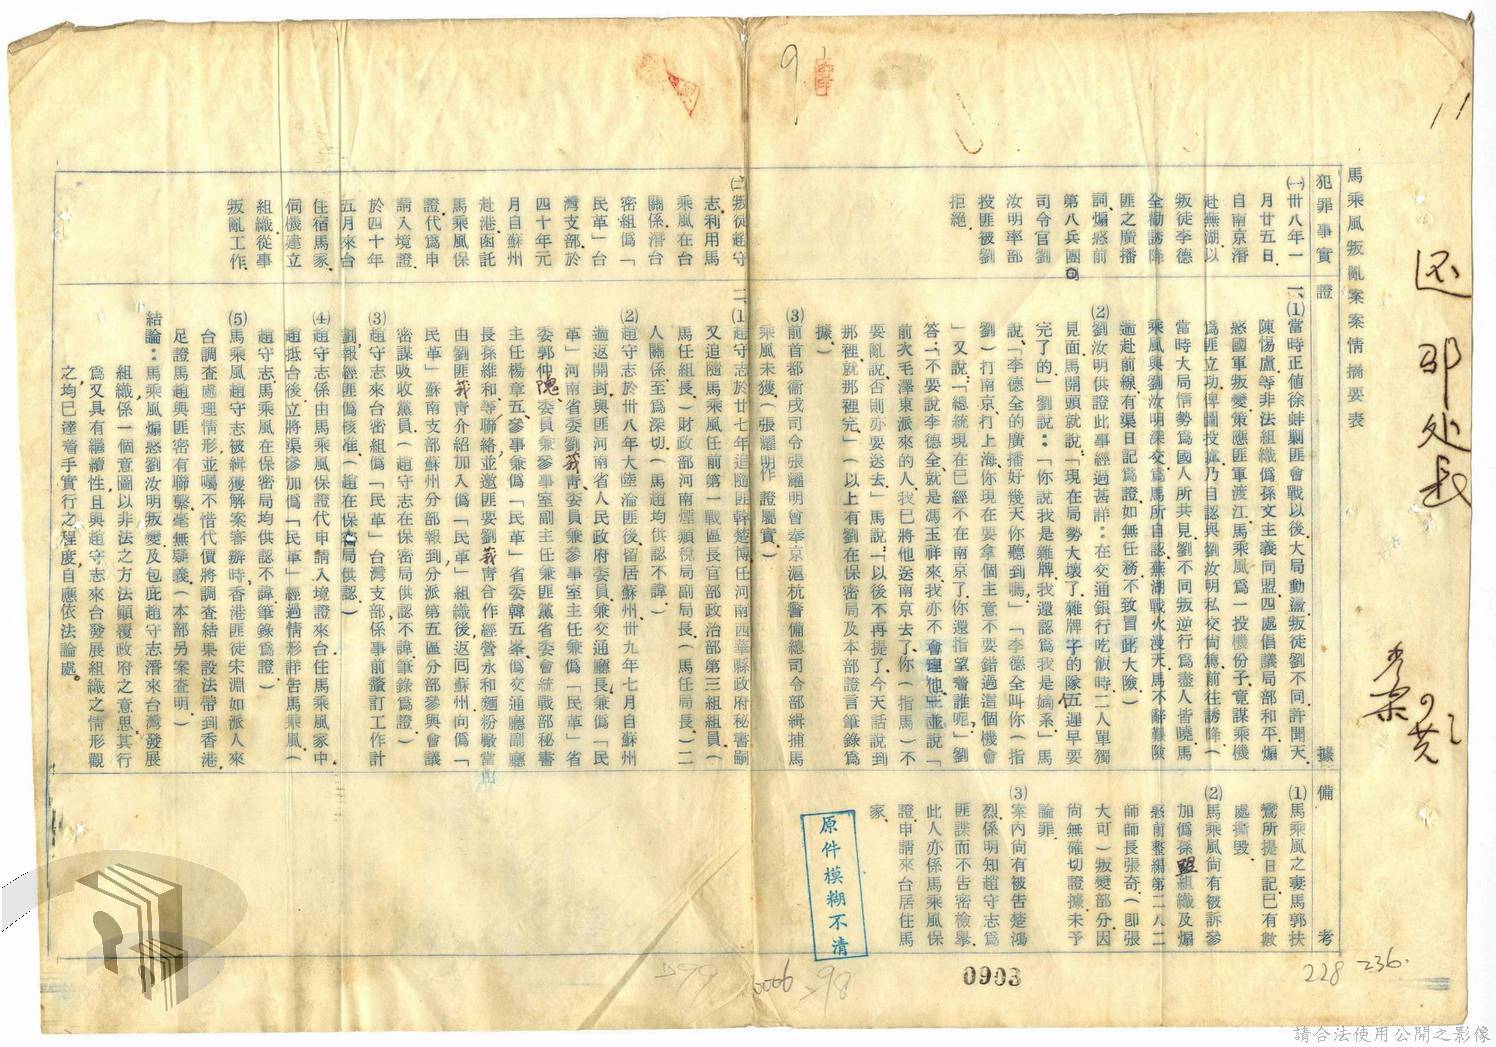 还 邵 处 長
馬乘風叛亂案案情摘要表
犯罪事實
證據
備考
㈠卅八年一
月廿五日
自南京潛
赴蕪湖以
叛徒李德
全勸誘降
匪之廣播
詞煽惑前
第八兵團司
司令官劉
汝明率部
投匪被劉
拒絕
㈡叛徒趙守
志利用馬
乘風在台
關係潛台
密組偽「
民革」台
灣支部於
四十年元
月自蘇州
赴港函託
馬乘風保
證代為申
請入境證
於四十年
五月來台
住宿馬家
伺機建立
組織從事
叛亂工作
一、⑴當時正值徐蚌剿匪會戰以後大局動盪叛徒劉不同許聞天
陳惕盧等非法組織偽孫文主義同盟四處倡議局部和平煽
惑國軍叛變策應匪軍渡江馬乘風為一投機份子竟謀乘機
為匪立功俾圖投靠乃自認與劉汝明私交尚篤前往誘降（
當時大局情勢為國人所共見劉不同叛逆行為盡人皆曉馬
乘風與劉汝明深交為馬所自認蕪湖戰火漫天馬不辭艱險
遄赴前線有渠日記為證如無任務不致冒此大險）
⑵劉汝明供證此事經過甚詳：在交通銀行吃飯時二人單獨
見面馬開頭就說「現在局勢大壞了雜牌子的隊伍遲早要
完了的」劉說：「你說我是雜牌我還認為我是嫡系」馬
說「李德全的廣播好幾天你聽到嗎」「李德全叫你（指
劉）打南京打上海你現在要拿個主意不要錯過這個機會
」又說「總統現在已經不在南京了你還指望着誰呢」劉
答「不要說李德全就是馮玉祥來我亦不會理他」並說「
前次毛澤東派來的人我已將他送南京去了你（指馬）不
要亂說否則亦要送去」馬說「以後不再提了今天話說到
那裡就那裡完」（以上有劉在保密局及本部證言筆錄為
據）
⑶前首都衞戍司令張耀明曾奉京滬杭警備總司令部緝捕馬
乘風未獲（張耀明作證屬實）
二、⑴趙守志於廿七年追隨匪幹楚博任河南西華縣政府秘書嗣
又追隨馬乘風任前第一戰區長官部政治部第三組組員（
馬任組長）財政部河南煙類稅局副局長（馬任局長）二
人關係至為深切（馬趙均供認不諱）
⑵趙守志於卅八年大陸淪匪後留居蘇州卅九年七月自蘇州
遄返開封與匪河南省人民政府委員兼交通廳長兼偽「民
革」河南省委劉莪青委員兼參事室主任兼偽「民革」省
委郭仲隗委員兼參事室副主任兼匪黨省委會統戰部秘書
主任楊章五參事兼偽「民革」省委韓五峯偽交通廳副廳
長孫維和等聯絡並邀匪要劉莪青合作經營永和麵粉廠當即
由劉匪莪青介紹加入偽「民革」組織後返回蘇州向偽「
民革」蘇南支部蘇州分部報到分派第五區分部參與會議
密謀吸收黨員（趙守志在保密局供認不諱筆錄為證）
⑶趙守志來台密組偽「民革」台灣支部係事前釐訂工作計
劃報經匪偽核准（趙在保密局供認）
⑷趙守志係由馬乘風保證代申請入境證來台住馬乘風家中
趙抵台後立將渠參加偽「民革」經過情形詳告馬乘風（
趙守志馬乘風在保密局均供認不諱筆錄為證）
⑸馬乘風趙守志被緝獲解案審辦時香港匪徒宋淵如派人來
台調查處理情形並囑不惜代價將調查結果設法帶到香港
足證馬趙與匪密有聯繫毫無疑義（本部另案查明）
結論：馬乘風煽惑劉汝明叛變及包庇趙守志潛來台灣發展
組織係一個意圖以非法之方法顛覆政府之意思其行
為又具有繼續性且與趙守志來台發展組織之情形觀
之均已達着手實行之程度自應依法論處。
⑴馬乘風之妻馬郭扶
鸞所提日記已有數
處撕毀
⑵馬乘風尚有被訴參
加偽孫盟組織及煽
惑前整編第二八二
師師長張奇（即張
大可）叛變部分因
尚無確切證據未予
論罪
⑶案內尚有被告楚鴻
烈係明知趙守志為
匪諜而不告密檢舉
此人亦係馬乘風保
證申請來台居住馬
家
原件模糊不清
0903
228
236.
0006
298
299
9
11
請合法使用公開之影像